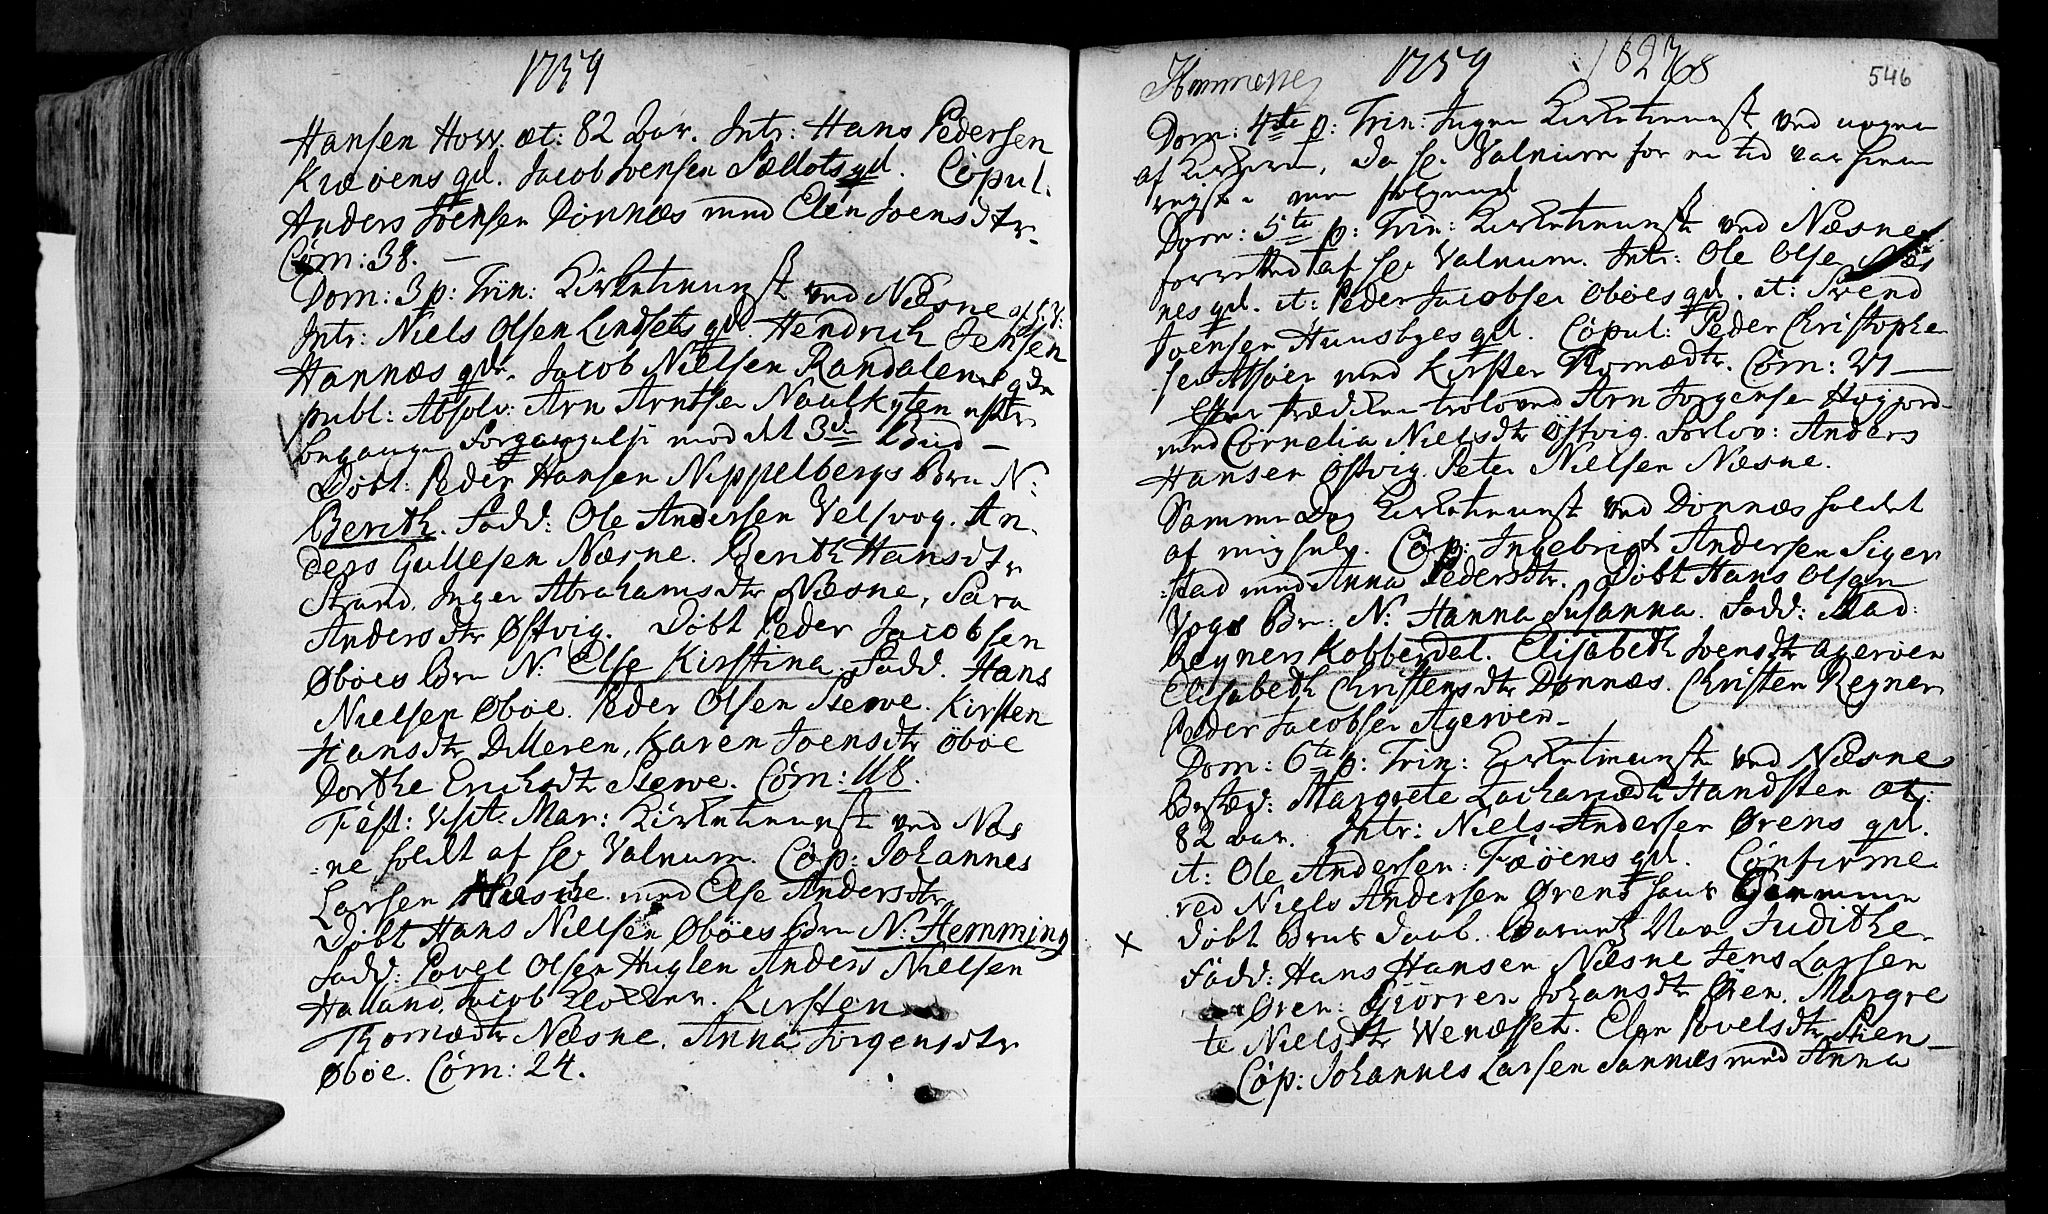 1759
Hansen How. æt: 82 aar. Intr: Hans Pedersen
Kiæøens qd. Jacob Joensen Sællots qd. Copul.
Anders Joensen Dønnæs med Elen Joensdtr.
Com: 38. —
Dom: 3 p: Trin: Kirketienest ved Næsne af S. V:
Intr: Niels Olsen Lindsets qd. Hendrich Jensen
Hannæs qd. Jacob Nielsen Randalens qde
publ: Absolv: Arn Arntsen Naulkyten efter
begangen Forgængelse mod det 3de bud —
Døbt: Peder Hansen Nippelbergs Barn N:
Berith. Fadd: Ole Andersen Velsvog. An-
ders Gullesen Næsne. Berith Hansdtr
Strand. Inger Abrahamsdtr Næsne, Sara
Andersdtr Østvig. Døbt Peder Jacobsen
Øbøes Barn N: Else Kirstina. Fadd. Hans
Nielsen Øbøe. Peder Olsen Stewe. Kirsten
Hansdtr Dilleren, Karen Joensdtr Øbøe
Dorthe Erichsdtr Stewe. Com: 118.
Fest: Visit: Mar: Kirketienest ved Næs
:ne holdt af Hr Valnum. Cop: Johannes
Larsen med Else Andersdtr
Døbt Hans Nielsen Øbøes Barn N: Hemming
Fadd: Povel Olsen Huglen Anders Nielsen
Halland, Jacob Klokker. Kirsten
Thomædtr Næsne. Anna Jørgensdtr
Øbøe. Com: 24.
Hemnesne
1759
546
Dom: 4de p: Trin: Ingen Kirketienest ved nogen
af Kirkerne, da Hr. Valnum for en tid var
Dom: 5te p: Trin: Kirketienest ved Næsne
forretted af Hr Valnum. Intr: Ole Olsen Næs
nes qd. it: Peder Jacobsen Øbøes qd. it: Svend
Joensen Huusbyes qd. Copul: Peder Christophe
sen med Kirsten Thomædtr. Com: 27 —
troloved Arn Jørgensen Hogjord
med Cornelia Nielsdtr Østvig. Forlov: Anders
Hansen Østvig. Peter Nielsen Næsne.
Samme Dag Kirketienest ved Dønnæs holdet
af mig selv. Cop: Ingebrigt Andersen Siger
:stad med Anna Pedersdtr. Døbt Hans Olsen
Vogs Barn: N: Hanna Susanna. Fadd: Mad:
Regners Kobberdel. Elisabeth Joensdtr Agerøen
Elisabeth Christensdtr Dønnæs. Christen Regner
Peder Jacobsen Agerøen.
Dom: 6te p: Trin: Kirketienest ved Næsne
Begrav: Margrete Zachariædtr Handsten æt:
82 aar. Intr: Niels Andersen Ørens qd.
it: Ole Andersen: Fæøens qd. Confirme
red Niels Andersen Ørens hans hiemme
døbt Barns Daab. Barnets Nav. Judithe
Fadd: Hans Hansen Næsne Jens Larsen
Øren: Giørren Johansdtr Øren. Margre
te Nielsdtr Wenæsset. Elen Povelsdtr Stien
Cop: Johannes Larsen Sannæs med Anna